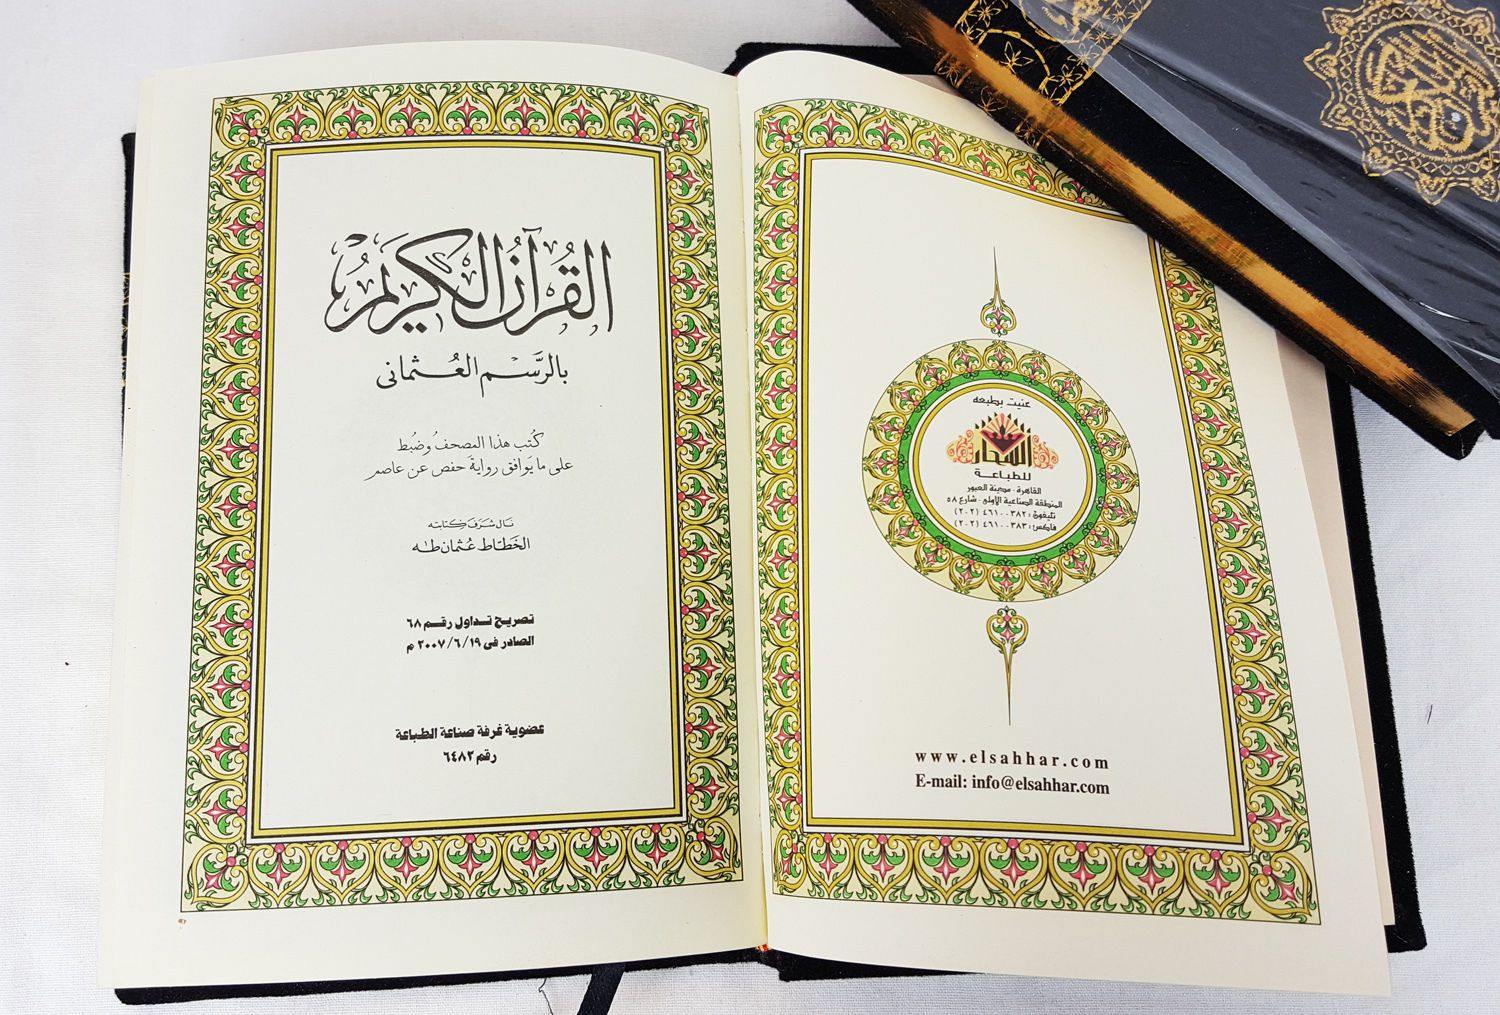 القُرآنُ الكَريمُ
بالرَّسْم العُثمانى
كُتبَ هذا المصحفُ وضُبط
على ما يَوافق روايةَ حفص عن عاصم
نال شرف كتابته
الخَطاط عُثمان طه
تصريح تداول رقم ٦٨
الصادر فى ٢٠٠٧/٦/١٩ م
عضوية غرفة صناعة الطباعة
رقم ٦٤٨٢
عنيت بطبعه
السحار
للطباعة
القاهرة - مدينة العبور
المنطقة الصناعية الأولى - شارع ٥٨
تليفون : ٤٦١٠٠٣٨٢ (٢٠٢)
فاكس : ٤٦١٠٠٣٨٣ (٢٠٢)
www.elsahhar.com
E-mail: info@elsahhar.com